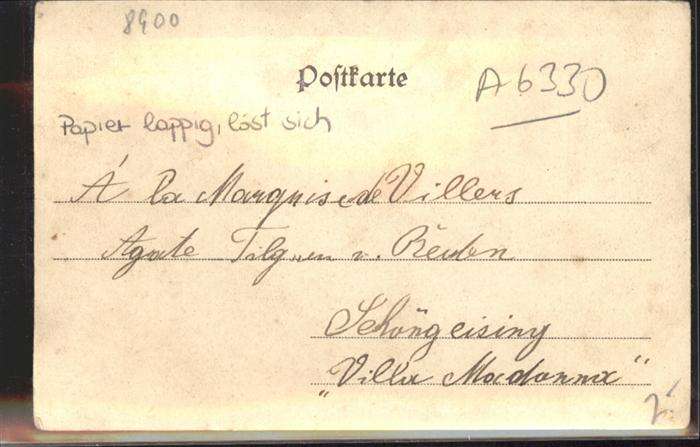 8900
Postkarte
A6330
Papier lappig, löst sich
Á la Marquise de Villers
Agate v. Reuben
Schöngeising
"Villa Madonna"